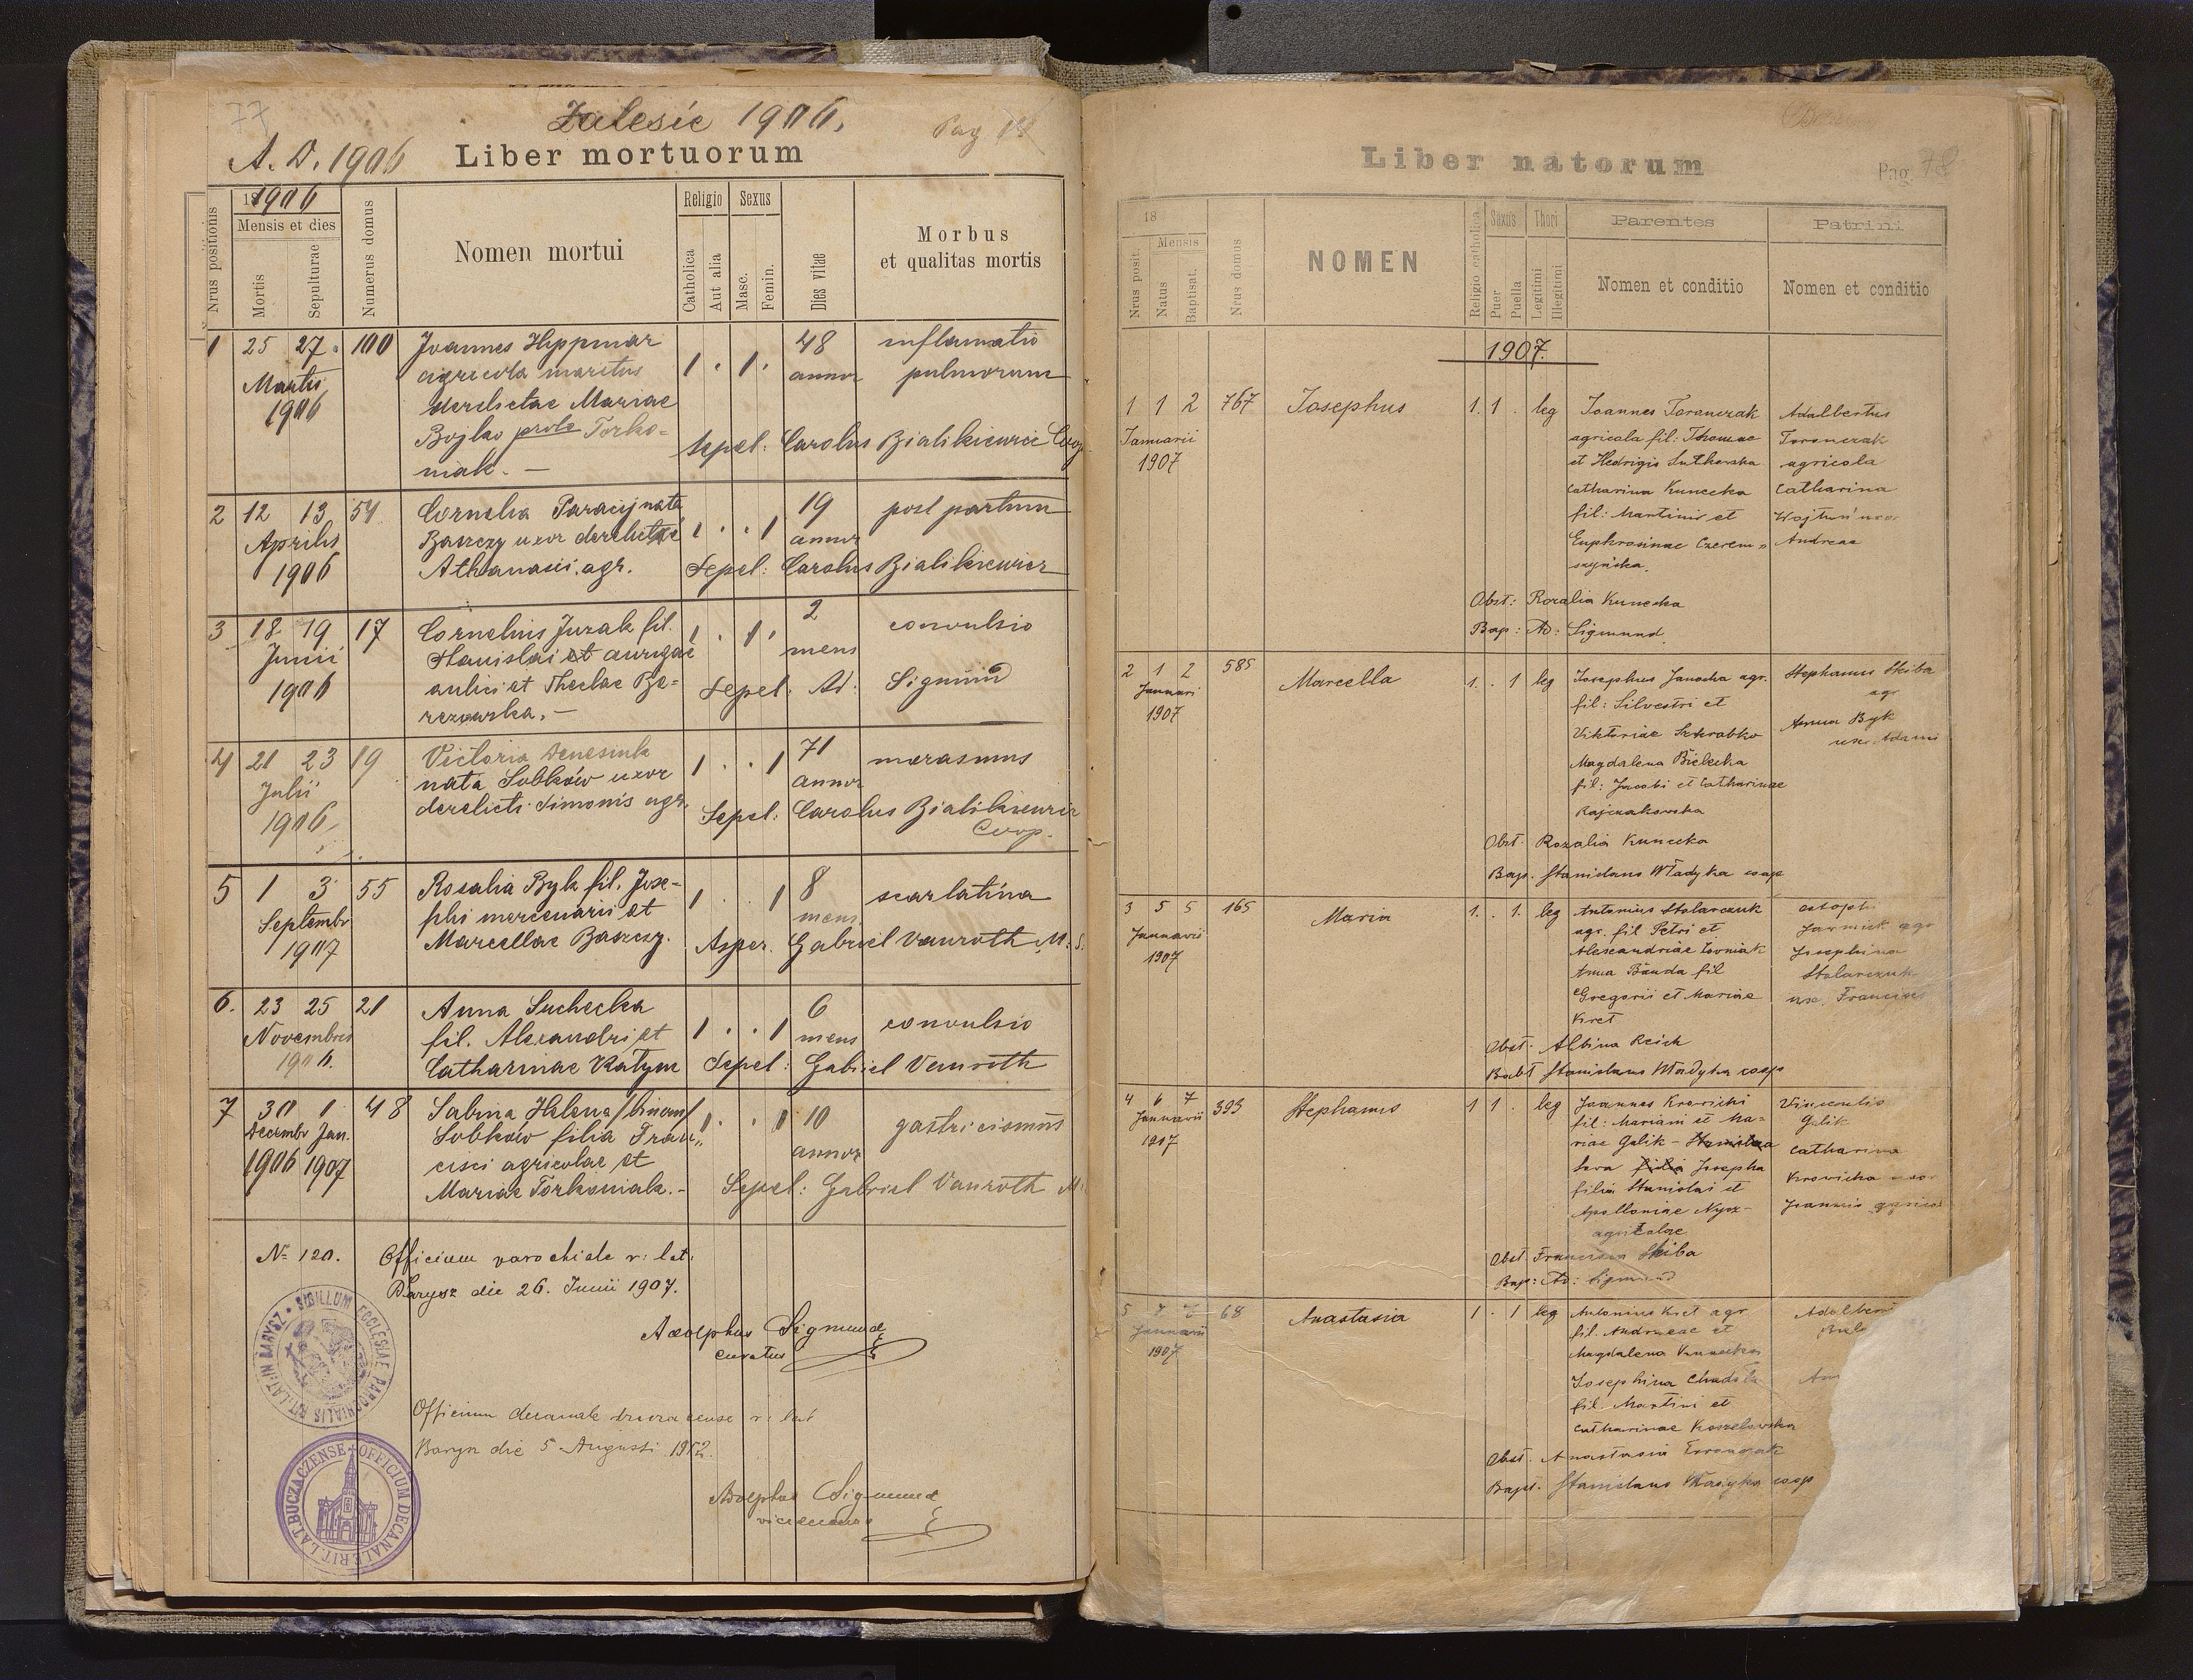 77
Zalesie 1906.
Pag
A. D. 1906 Liber mortuorum
Nrus positionis
1906
Mensis et dies
Mortis
Sepulturae
Numerus domus
Nomen mortui
Religio
Catholica
Aut alia
Sexus
Masc.
Femin.
Dies vitae
Morbus
et qualitas mortis
1 25 27. 100 Joannes Hippmar 48 inflamatio
Martii agricola maritus 1 . 1 . annor pulmorum
1906 derelictae Mariae
Bojko prole Torko-
niak. — Sepel: Carolus Bialikiewicz Coop
2 12 13 54 Cornelia Paracij nata 19 post partum
Aprilis Barszcz uxor derelictae 1 . . 1 annor
1906 Athanasii agr. Sepel: Carolus Bialikiewicz
3 18 19 17 Cornelius Juzak fil. 1 . 1 . 2 convulsio
Junii Stanislai et aurigae mens
1906 aulici et Theclae Be-
rezowska. — Sepel: Ad: Sigmund
4 21 23 19 Victoria Denesiuk 71 marasmus
Julii nata Sobków uxor 1 . . 1 annor
1906 derelicti Simonis agr. Sepel: Carolus Bialikiewicz
Coop.
5 1 3 55 Rosalia Byk fil. Jose- 8 scarlatina
Septembr phi mercenarii et 1 . . 1 mens
1907 Marcellae Barszcz. Asper. Gabriel Vanroth M. S.
6. 23 25 21 Anna Suchecka 6 convulsio
Novembris fil. Alexandri et 1 . . 1 mens
1906. Catharinae Katym Sepel: Gabriel Vanroth
7 30 1 48 Sabina Helena /binom/ 1 . . 1 10 gastricismus
Decembr Jan. Sobków filia Fran- annor
1906 1907 cisci agricolae et
Mariae Torkoniak. - Sepel: Gabriel Vanroth M
N= 120. Officium parochiale r: lat:
Barysz die 26. Junii 1907.
Adolphus Sigmund
curatus
SIGILLUM ECCLESIAE PAROCHIALIS RIT. LAT. IN BARYSZ
Officium decanale buczacense r: lat
Barysz die 5 Augusti 1912.
Adolphus Sigmund
vicedecanus
OFFICIUM DECANALE RIT. LAT. BUCZACZENSE
Liber natorum
Pag. 78
18
Nrus posit.
Mensis
Natus
Baptisat.
Nrus domus
NOMEN
Religio catholica
Sexus
Puer
Puella
Thori
Legitimi
Illegitimi
Parentes
Nomen et conditio
Patrini
Nomen et conditio
1907.
1 1 2 767 Josephus 1. 1 . leg Joannes Toronczak Adalbertus
Januarii agricola fil: Thomae Toronczak
1907 et Hedrigis agricola
Catharina Kunecka Catharina
fil: Martinis et
Euphrosinae Czerem- Andreae
szyńska.
Obst: Rozalia Kunecka
Bap: Ad: Sigmund
2 1 2 585 Marcella 1. . 1 leg Josephus Janocha agr. Stephanus Skiba
Januari fil: Silvestri et agr
1907 Viktoriae Szkrabko Anna Byk
Magdalena Bielecka ux. Adami
fil: Jacobi et Catharinae
Rajczakowska
Obst. Rozalia Kunecka
Bap. Stanislaus Władyka coop
3 5 5 165 Maria 1. . 1. leg Antonius Stolarczuk
Januarii agr. fil Petri et agr
1907 Alexandriae Josephina
Anna Banda fil Stolarczuk
Gregorii et Mariae ux. Francisci
Kret
Obst. Albina Reich
Babt Stanislaus Władyka coop
4 6 7 393 Stephanus 1 1 . leg Joannes Krowicki Vincentis
Januarii fil: Mariani et Ma- Galik
1907 riae Galik - Catharina
filia Josepha Krowicka uxor
filia Stanislai et Joannis
Apolloniae Nycz-
agricolae
Obst Francisca Skiba
Bap: Ad: Sigmund
5 7 7 68 Anastasia 1 . 1 leg Antonius Kret agr
Januarii fil. Andreae et
1907 Magdalena Kunecka
Josephina
fil. Martini et
Catharinae Kozelowska
Obst. Anastasia Toronczak
Bapt. Stanislaus Władyka coop